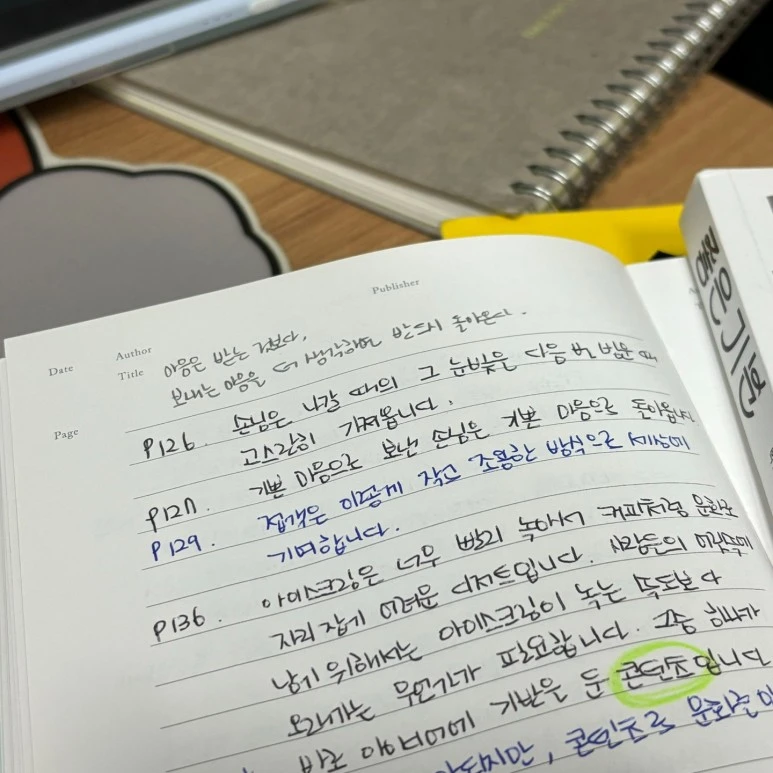 Publisher
Date
Author
Title
마음은 받는 것보다,
보내는 마음을 더 생각하면 반드시 돌아온다.
Page
P126. 손님은 나갈 때의 그 눈빛을 다음 번 방문 때
고스란히 가져옵니다.
P127. 기쁜 마음으로 보낸 손님은 기쁜 마음으로 돌아옵니다
P129. 접객은 이렇게 작고 조용한 방식으로 세상에
기여합니다.
P136. 아이스크림은 너무 빨리 녹아서 커피처럼 문화로
자리 잡게 어려운 디저트입니다. 사람들의 머릿속에
남기 위해서는 아이스크림이 녹는 속도보다
오래가는 무언가가 필요합니다. 그중 하나가
바로 아이디어에 기반을 둔 콘텐츠입니다
콘텐츠로 문화를